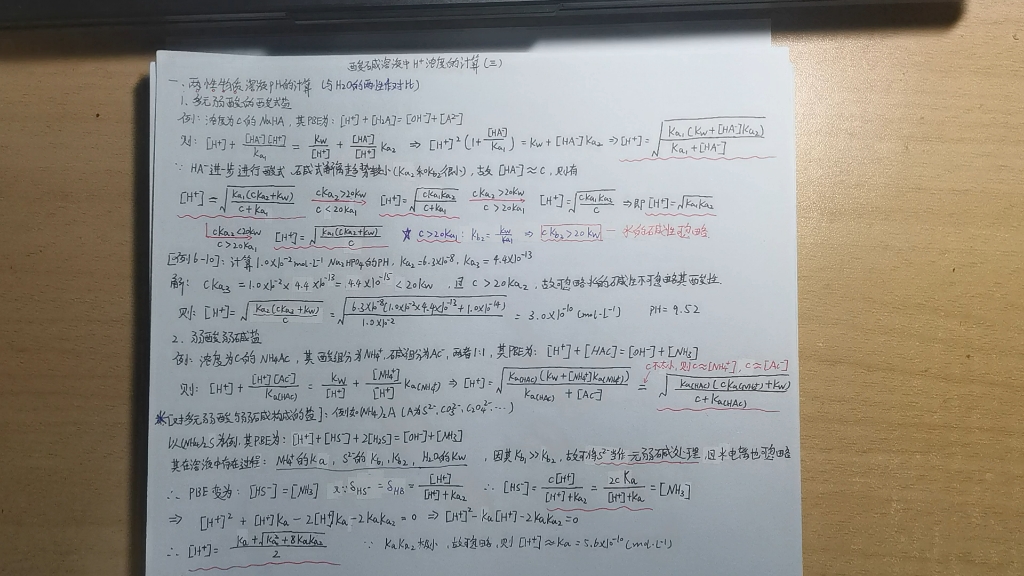 酸碱溶液中H⁺浓度的计算(三)
一、两性物质溶液PH的计算 (与H₂O的两性作对比)
1. 多元弱酸的酸式盐
例: 浓度为c的NaHA, 其PBE为: [H⁺]+[H₂A]=[OH⁻]+[A²⁻]
则: [H⁺] + [HA⁻][H⁺]/Ka₁ = Kw/[H⁺] + [HA⁻]/[H⁺] Ka₂ ⇒ [H⁺]²(1+[HA⁻]/Ka₁) = Kw+[HA⁻]Ka₂ ⇒ [H⁺]=√(Ka₁(Kw+[HA⁻]Ka₂)/(Ka₁+[HA⁻]))
∵ HA⁻进一步进行酸式、碱式解离趋势较小(Ka₂和Kb₂很小), 故 [HA⁻]≈c, 则有
[H⁺]=√(Ka₁(cKa₂+Kw)/(c+Ka₁)) cKa₂>20Kw c<20Ka₁ [H⁺]=√(cKa₁Ka₂/(c+Ka₁)) cKa₂>20Kw c>20Ka₁ [H⁺]=√(cKa₁Ka₂/c) ⇒即[H⁺]=√(Ka₁Ka₂)
cKa₂<20Kw c>20Ka₁ [H⁺]=√(Ka₁(cKa₂+Kw)/c) ★ c>20Ka₁: Kb₂=Kw/Ka₁ ⇒ cKb₂>20Kw — 水的碱性可忽略
[例6-10]: 计算1.0×10⁻²mol·L⁻¹ Na₂HPO₄的PH, Ka₂=6.3×10⁻⁸, Ka₃=4.4×10⁻¹³
解: cKa₃=1.0×10⁻²×4.4×10⁻¹³=4.4×10⁻¹⁵<20Kw, 且 c>20Ka₂, 故可忽略水的碱性不可忽略其酸性.
则: [H⁺]=√(Ka₂(cKa₃+Kw)/c) = √(6.3×10⁻⁸(1.0×10⁻²×4.4×10⁻¹³+1.0×10⁻¹⁴)/1.0×10⁻²) = 3.0×10⁻¹⁰ (mol·L⁻¹) PH=9.52
2. 弱酸弱碱盐
例: 浓度为c的NH₄Ac, 其酸组分为NH₄⁺, 碱组分为Ac⁻, 两者1:1, 其PBE为: [H⁺]+[HAc]=[OH⁻]+[NH₃]
c不太小, 则c≈[NH₄⁺], c≈[Ac⁻]
则: [H⁺] + [H⁺][Ac⁻]/Ka(HAc) = Kw/[H⁺] + [NH₄⁺]/[H⁺] Ka(NH₄⁺) ⇒ [H⁺]=√(Ka(HAc)(Kw+[NH₄⁺]Ka(NH₄⁺))/(Ka(HAc)+[Ac⁻])) = √(Ka(HAc)(cKa(NH₄⁺)+Kw)/(c+Ka(HAc)))
★[对多元弱酸与弱碱构成的盐]: 例如(NH₄)₂A (A为S²⁻, CO₃²⁻, C₂O₄²⁻…)
以(NH₄)₂S为例, 其PBE为: [H⁺]+[HS⁻]+2[H₂S]=[OH⁻]+[NH₃]
其在溶液中存在过程: NH₄⁺的Ka, S²⁻的Kb₁, Kb₂, H₂O的Kw, 因其Kb₁≫Kb₂, 故可将S²⁻当作一元弱碱处理, 且水电离也可忽略
∴ PBE变为: [HS⁻]=[NH₃] 又∵δHS⁻=δHB=[H⁺]/([H⁺]+Ka₂) ∴ [HS⁻]=c[H⁺]/([H⁺]+Ka₂)=2cKa/([H⁺]+Ka)=[NH₃]
⇒ [H⁺]²+[H⁺]Ka-2[H⁺]Ka-2KaKa₂=0 ⇒ [H⁺]²-Ka[H⁺]-2KaKa₂=0
∴ [H⁺]=(Ka+√(Ka²+8KaKa₂))/2 ∵ KaKa₂很小, 故可忽略, 则 [H⁺]≈Ka=5.6×10⁻¹⁰(mol·L⁻¹)